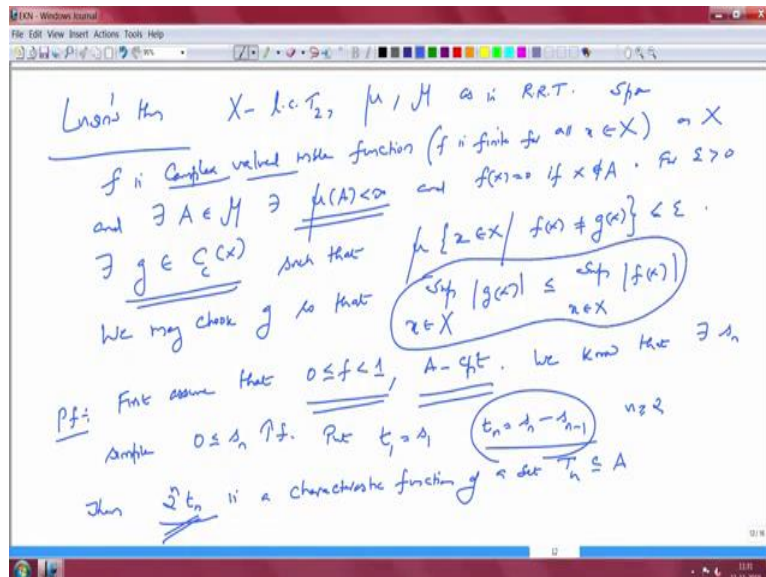 EKN - Windows Journal
File Edit View Insert Actions Tools Help
Lusin's thm X - l.c. T₂, μ, M as in R.R.T. Spse
f is Complex valued mble function (f is finite for all x ∈ X) on X
and ∃ A ∈ M ∋ μ(A) < ∞ and f(x) = 0 if x ∉ A. For Σ > 0
∃ g ∈ C_c(X) such that μ {x ∈ X | f(x) ≠ g(x)} < Σ.
We may choose g so that Sup |g(x)| ≤ Sup |f(x)|
x ∈ X x ∈ X
Pf: First assume that 0 ≤ f < 1, A - cpt. We know that ∃ s_n
simple 0 ≤ s_n ↑ f. Put t₁ = s₁ t_n = s_n - s_{n-1} n ≥ 2
Then 2ⁿ t_n is a characteristic function of a set T_n ⊆ A
12